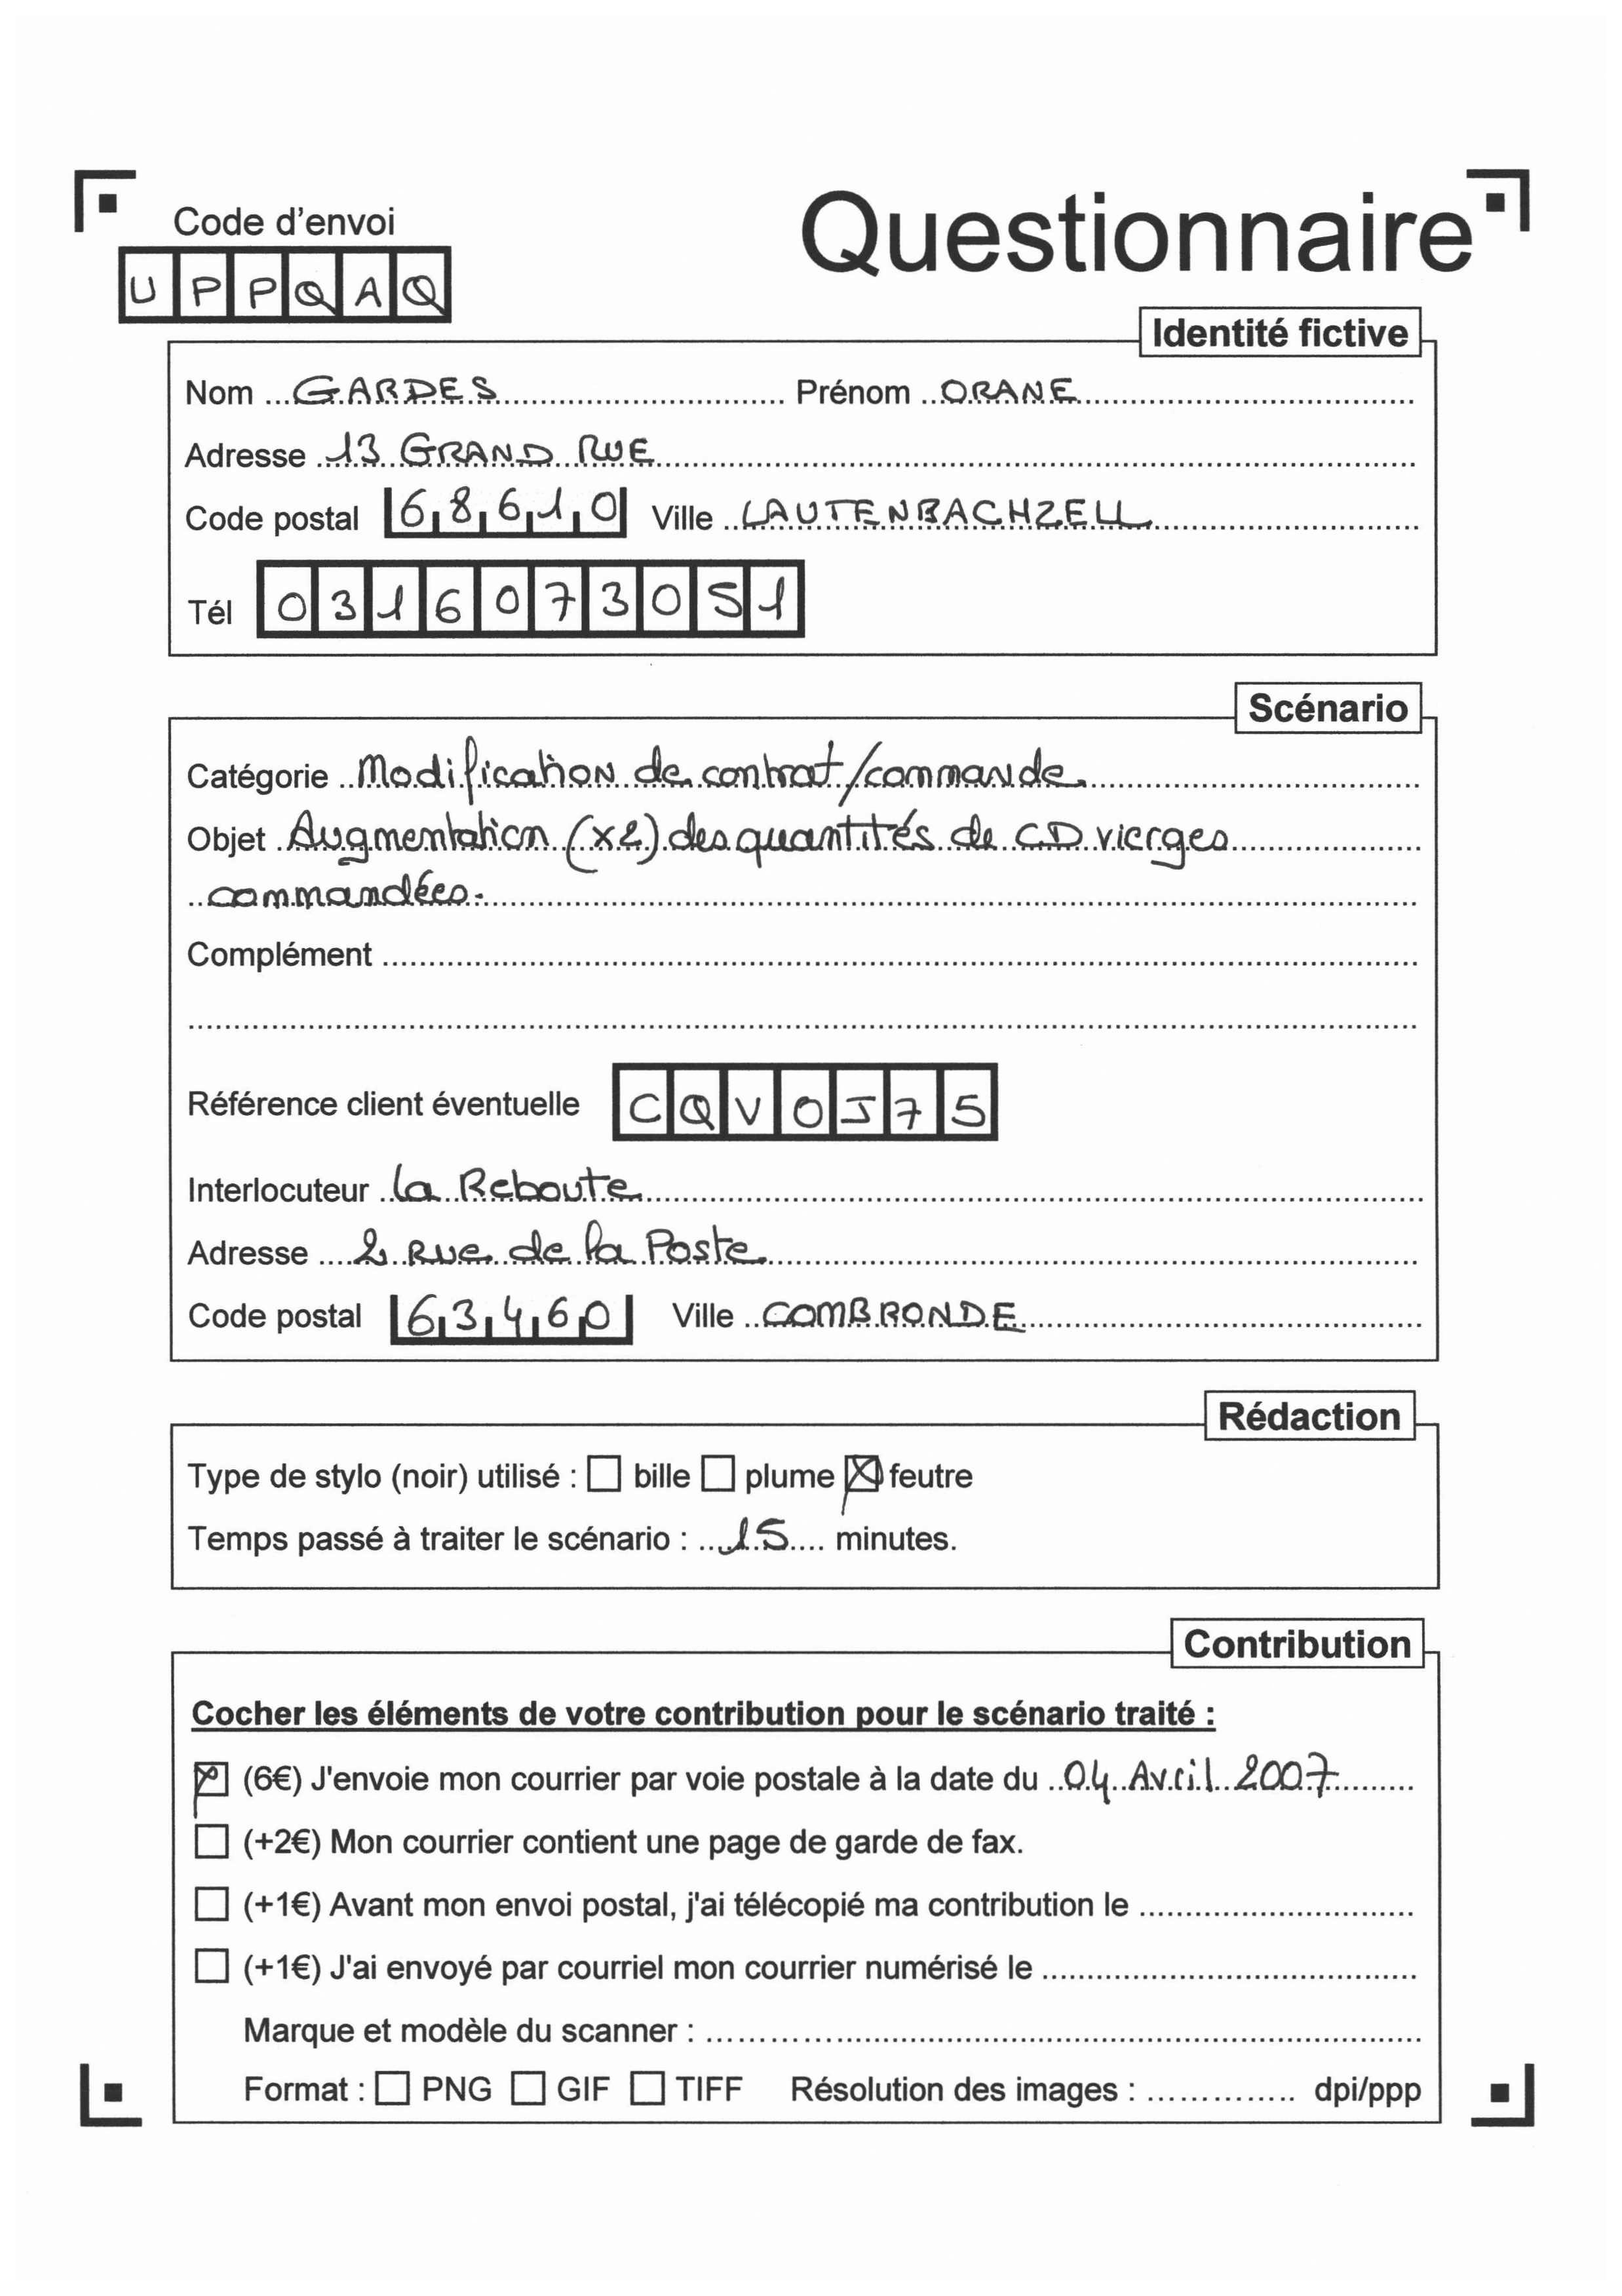 Code d'envoi
Questionnaire
UPPQAQ
Identité fictive
Nom GARDES Prénom ORANE
Adresse 13 GRAND RUE
Code postal 68610 Ville LAUTENBACHZELL
Tél 0316073051
Scénario
Catégorie Modification de contrat/commande.
Objet Augmentation (x2) des quantités de CD vierges
commandées.
Complément
Référence client éventuelle CQVOJ75
Interlocuteur la Reboute
Adresse 2 Rue de la Poste
Code postal 63460 Ville COMBRONDE
Rédaction
Type de stylo (noir) utilisé : bille plume feutre
Temps passé à traiter le scénario : 15 minutes.
Contribution
Cocher les éléments de votre contribution pour le scénario traité :
(6€) J'envoie mon courrier par voie postale à la date du 04 Avril 2007
(+2€) Mon courrier contient une page de garde de fax.
(+1€) Avant mon envoi postal, j'ai télécopié ma contribution le
(+1€) J'ai envoyé par courriel mon courrier numérisé le
Marque et modèle du scanner :
Format : PNG GIF TIFF Résolution des images : dpi/ppp